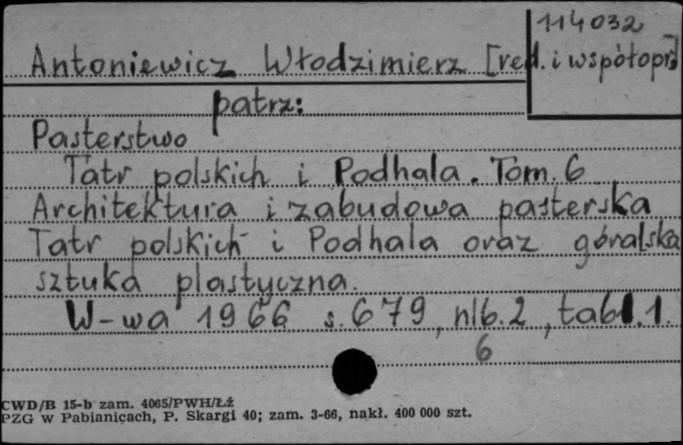 114032
Antoniewicz Włodzimierz [red. i współopr.]
patrz:
Pasterstwo
Tatr polskich i Podhala. Tom. 6
Architektura i zabudowa pasterska
Tatr polskich i Podhala oraz góralska
sztuka plastyczna.
W-wa 1966 s. 679, nlb. 2, tabl. 1.
6
CWD/B 15-b zam. 4065/PWH/Łż
PZG w Pabianicach, P. Skargi 40; zam. 3-66, nakł. 400 000 szt.